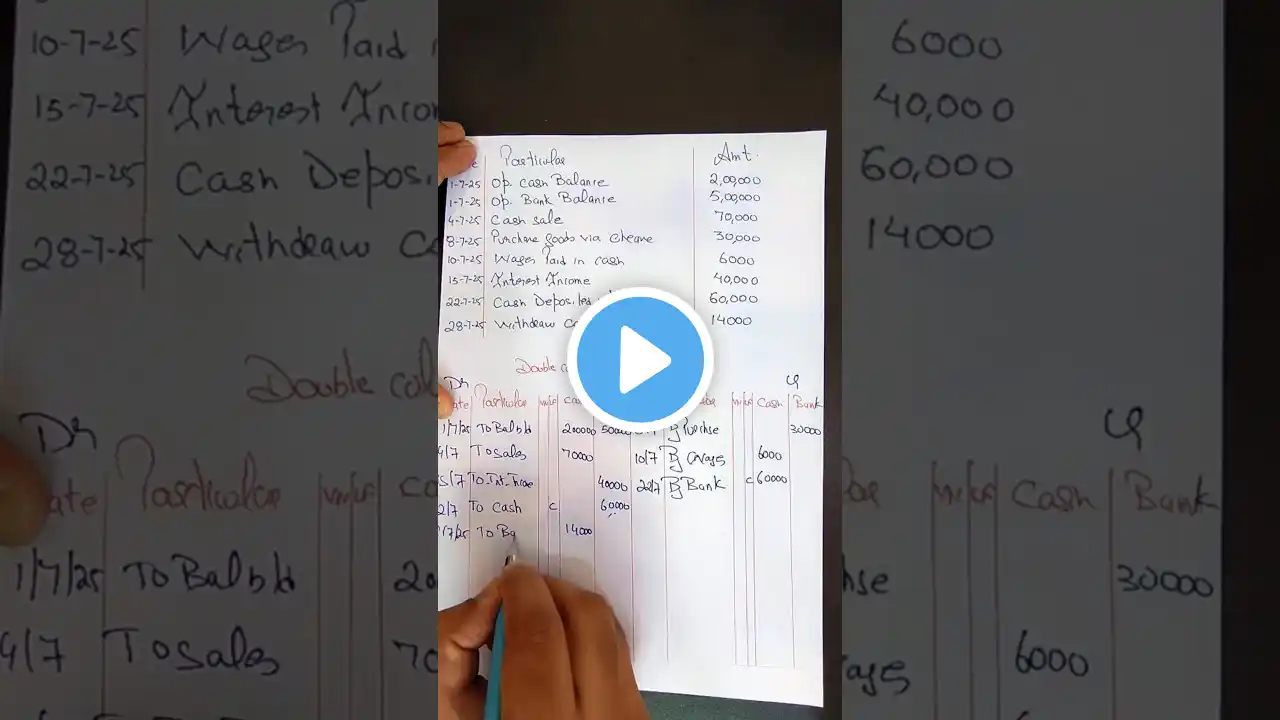 Particular Amt.
1-7-25 Op. Cash Balance 2,00,000
1-7-25 Op. Bank Balance 5,00,000
4-7-25 Cash sale 70,000
8-7-25 Purchase goods via cheque 30,000
10-7-25 Wages Paid in cash 6000
15-7-25 Interest Income 40,000
22-7-25 Cash Deposited 60,000
28-7-25 Withdraw 14000
Double
Dr Cr
ate Particular Cash Bank
1/7/25 To Bal b/d 200000 By Purchse 30000
4/7 To Sales 70000 10/7 By Wages 6000
5/7 40000 22/7 By Bank c 60000
2/7 To Cash c 60000
/7/25 To Ba 14000
10-7-25 Wages Paid in 6000
15-7-25 Interest 40,000
22-7-25 Cash 60,000
28-7-25 Withdraw 14000
Double
Dr Cr
ate Particular Cash Bank
1/7/25 To Bal b/d 30000
4/7 To Sales 6000